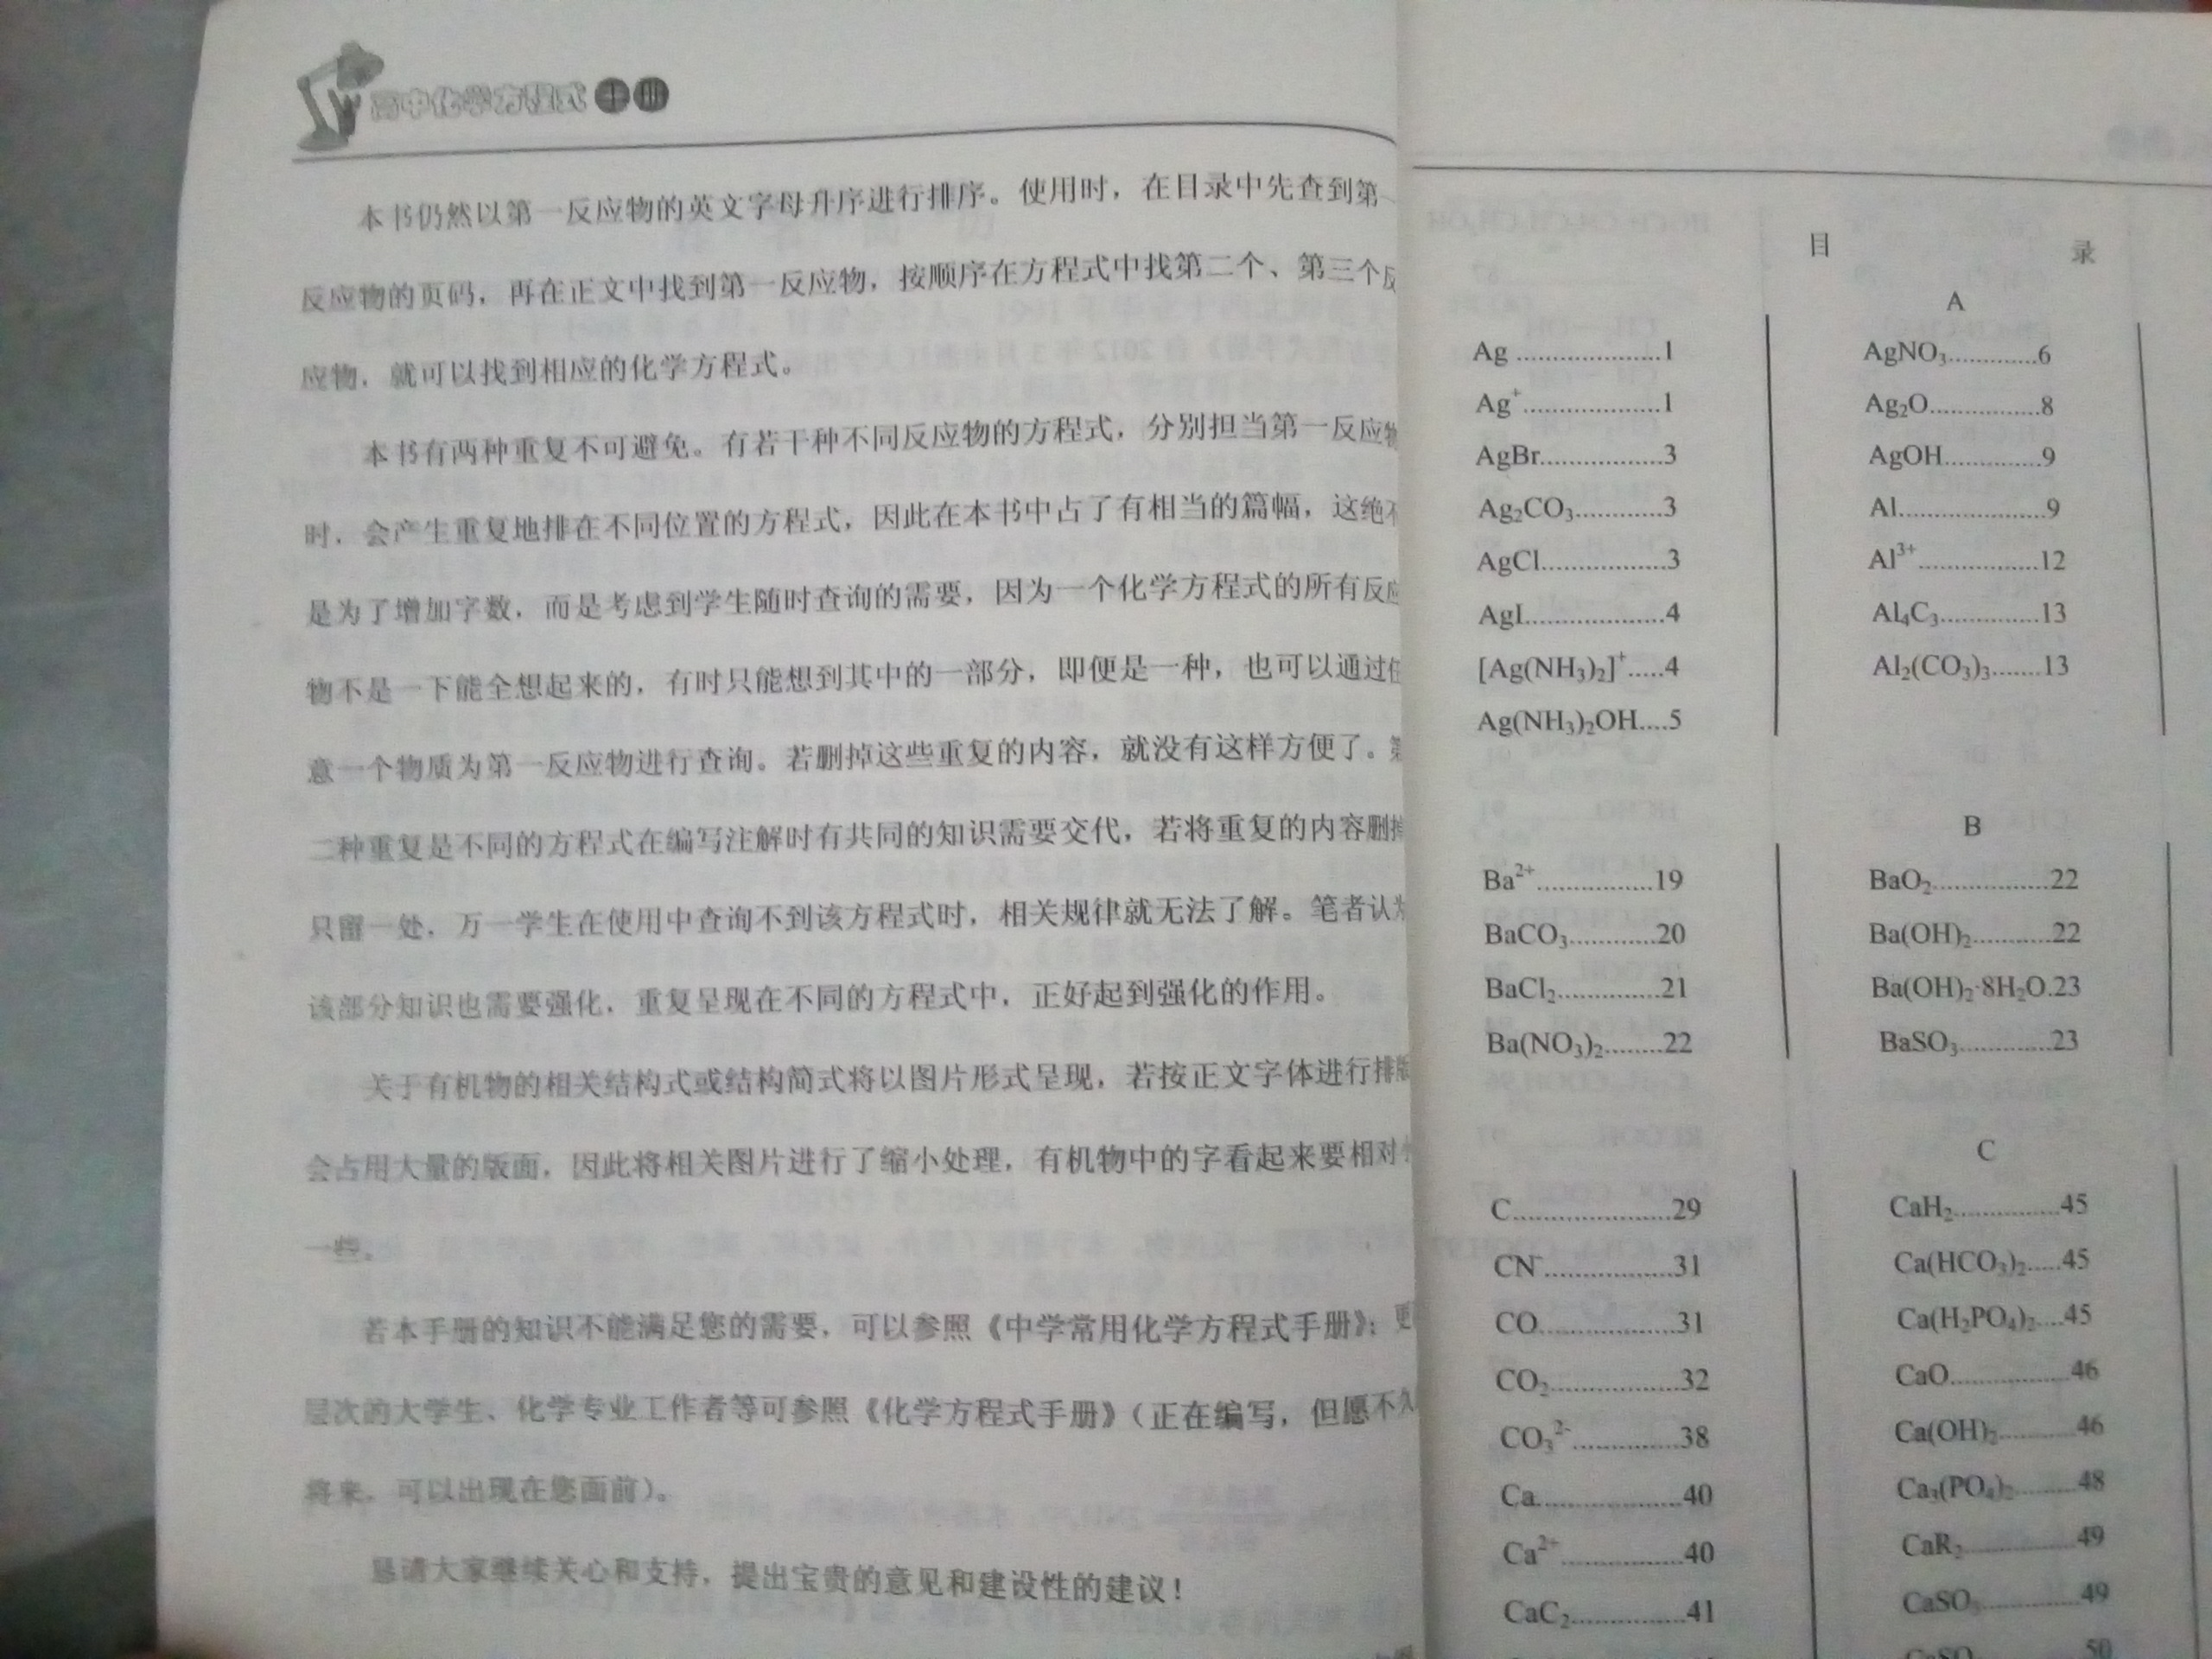 高中化学方程式手册
本书仍然以第一反应物的英文字母升序进行排序。使用时，在目录中先查到第一
反应物的页码，再在正文中找到第一反应物，按顺序在方程式中找第二个、第三个反
应物，就可以找到相应的化学方程式。
本书有两种重复不可避免。有若干种不同反应物的方程式，分别担当第一反应物
时，会产生重复地排在不同位置的方程式，因此在本书中占了有相当的篇幅，这绝不
是为了增加字数，而是考虑到学生随时查询的需要，因为一个化学方程式的所有反应
物不是一下能全想起来的，有时只能想到其中的一部分，即便是一种，也可以通过任
意一个物质为第一反应物进行查询。若删掉这些重复的内容，就没有这样方便了。第
二种重复是不同的方程式在编写注解时有共同的知识需要交代，若将重复的内容删掉
只留一处，万一学生在使用中查询不到该方程式时，相关规律就无法了解。笔者认为
该部分知识也需要强化，重复呈现在不同的方程式中，正好起到强化的作用。
关于有机物的相关结构式或结构简式将以图片形式呈现，若按正文字体进行排版
会占用大量的版面，因此将相关图片进行了缩小处理，有机物中的字看起来要相对
一些。
若本手册的知识不能满足您的需要，可以参照《中学常用化学方程式手册》；更
层次的大学生、化学专业工作者等可参照《化学方程式手册》（正在编写，但愿不久
将来，可以出现在您面前）。
恳请大家继续关心和支持，提出宝贵的意见和建设性的建议！
目 录
A
Ag ....................1
Ag⁺....................1
AgBr..................3
Ag₂CO₃............3
AgCl..................3
AgI....................4
[Ag(NH₃)₂]⁺.....4
Ag(NH₃)₂OH....5
AgNO₃.............6
Ag₂O................8
AgOH..............9
Al.....................9
Al³⁺.................12
Al₄C₃..............13
Al₂(CO₃)₃.......13
B
Ba²⁺.................19
BaCO₃............20
BaCl₂..............21
Ba(NO₃)₂........22
BaO₂................22
Ba(OH)₂...........22
Ba(OH)₂·8H₂O.23
BaSO₃.............23
C
C......................29
CN⁻..................31
CO....................31
CO₂..................32
CO₃²⁻...............38
Ca.....................40
Ca²⁺..................40
CaC₂................41
CaH₂...............45
Ca(HCO₃)₂.....45
Ca(H₂PO₄)₂....45
CaO.................46
Ca(OH)₂..........46
Ca₃(PO₄)₂........48
CaR₂................49
CaSO₃.............49